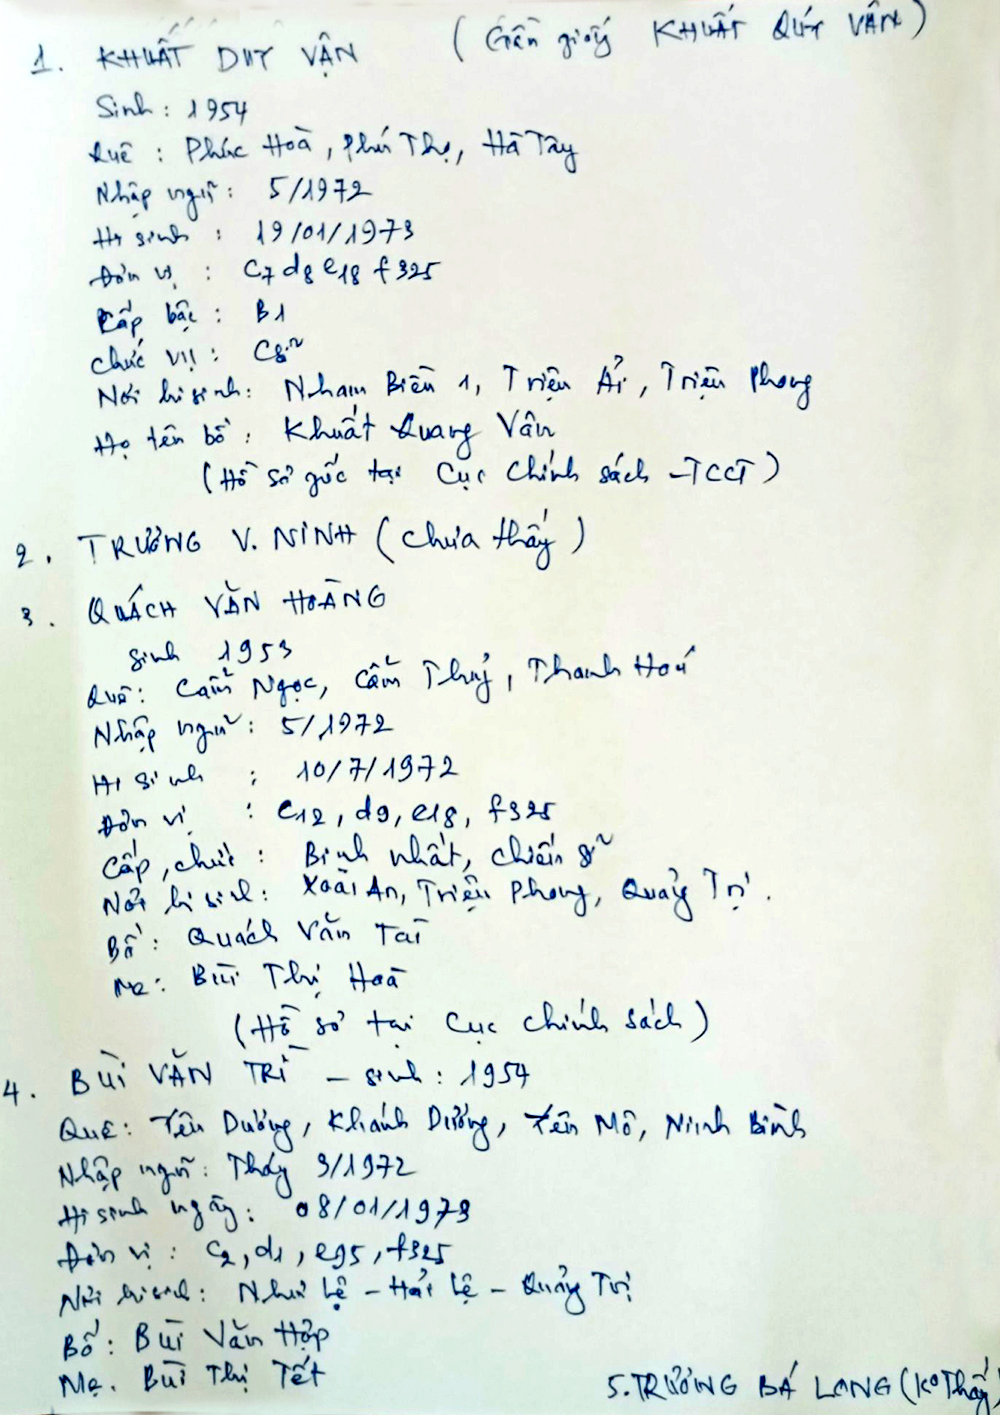 1. KHUẤT DUY VẬN (Gần giống KHUẤT QUÝ VÂN)
Sinh: 1954
Quê: Phúc Hoà, Phú Thọ, Hà Tây
Nhập ngũ: 5/1972
Hi sinh: 19/01/1973
Đơn vị: C7 d8 e18 f325
Cấp bậc: B1
Chức vụ: Cs~
Nơi hi sinh: Nham Biền 1, Triệu Ải, Triệu Phong
Họ tên bố: Khuất Quang Vân
(Hồ sơ gốc tại Cục Chính sách - TCCT)
2. TRƯƠNG V. NINH (Chưa thấy)
3. QUÁCH VĂN HOÀNG
Sinh 1953
Quê: Cẩm Ngọc, Cẩm Thuỷ, Thanh Hoá
Nhập ngũ: 5/1972
Hi sinh: 10/7/1972
Đơn vị: C12, d9, e18, f325
Cấp, chức: Binh nhất, chiến s~
Nơi hi sinh: Xoài An, Triệu Phong, Quảng Trị.
Bố: Quách Văn Tài
Mẹ: Bùi Thị Hoà
(Hồ sơ tại Cục Chính sách)
4. BÙI VĂN TRÌ - sinh: 1954
Quê: Yên Dương, Khánh Dương, Yên Mô, Ninh Bình
Nhập ngũ: Tháng 9/1972
Hi sinh ngày: 08/01/1973
Đơn vị: C2, d1, e95, f325
Nơi hi sinh: Như Lệ - Hải Lệ - Quảng Trị
Bố: Bùi Văn Hợp
Mẹ. Bùi Thị Tết
5. TRƯƠNG BÁ LONG (Ko Thấy)